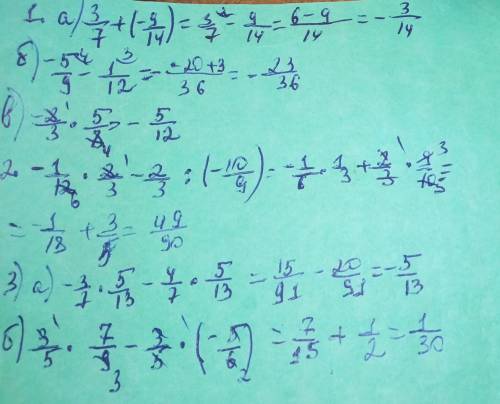 1. а) 3/7 + (-9/14) = 3/7² - 9/14 = 6-9/14 = - 3/14
б) -5/9⁴ - 1/12³ = - -20+3/36 = - 23/36
в) -2¹/3 · 5/8₄ = - 5/12
2. -1/12₆ · 2¹/3 - 2/3 : (-10/9) = -1/6 · 1/3 + 2¹/3 · 9³/10₅ =
= -1/18 + 3/5 = 49/90
3) а) -3/7 · 5/13 - 4/7 · 5/13 = 15/91 - 20/91 = - 5/13
б) 3¹/5 · 7/9₃ - 3¹/5 · (-5/6₂) = 7/15 + 1/2 = 1/30